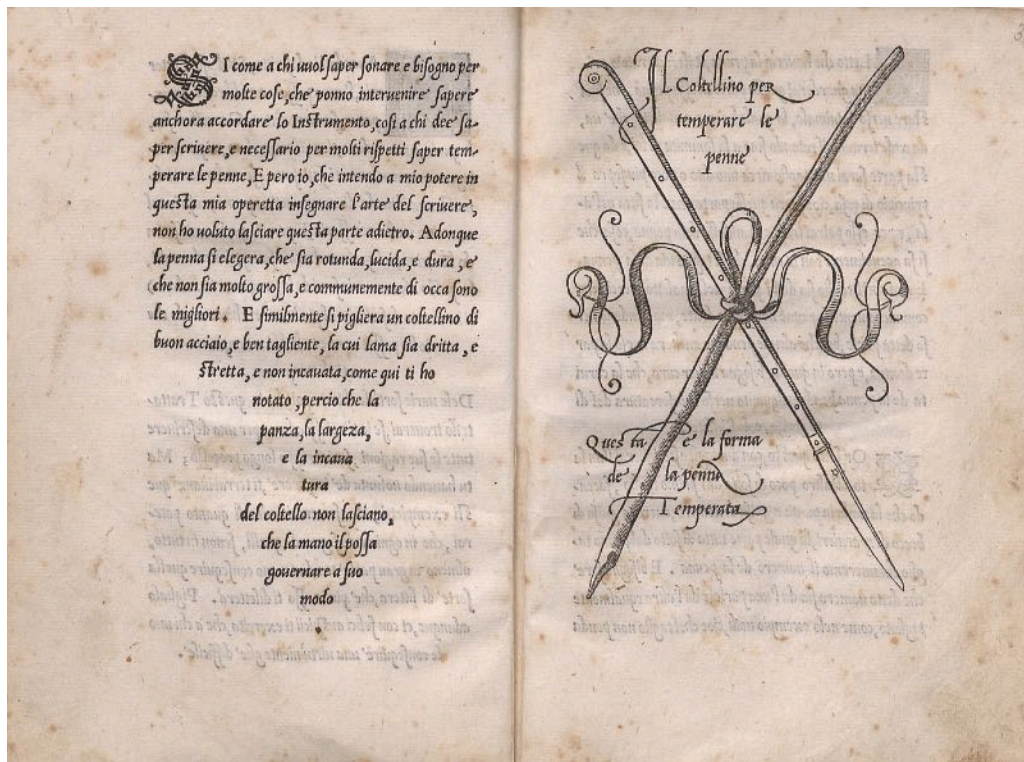 SI come a chi vuol saper sonare e bisogno per
molte cose, che ponno intervenire sapere
anchora accordare lo Instrumento, cosi a chi dee sa-
per scrivere, e necessario per molti rispetti saper tem-
perare le penne, E pero io, che intendo a mio potere in
questa mia operetta insegnare l'arte del scrivere,
non ho voluto lasciare questa parte adietro. Adonque
la penna si elegera, che sia rotunda, lucida, e dura, e
che non sia molto grossa, e communemente di occa sono
le migliori. E similmente si pigliera un coltellino di
buon acciaio, e ben tagliente, la cui lama sia dritta, e
stretta, e non incavata, come qui ti ho
notato, percio che la
panza, la largeza,
e la incava
tura
del coltello non lasciano,
che la mano il possa
governare a suo
modo
Il Coltellino per
temperare le
penne
Questa e la forma
de la penna
Temperata